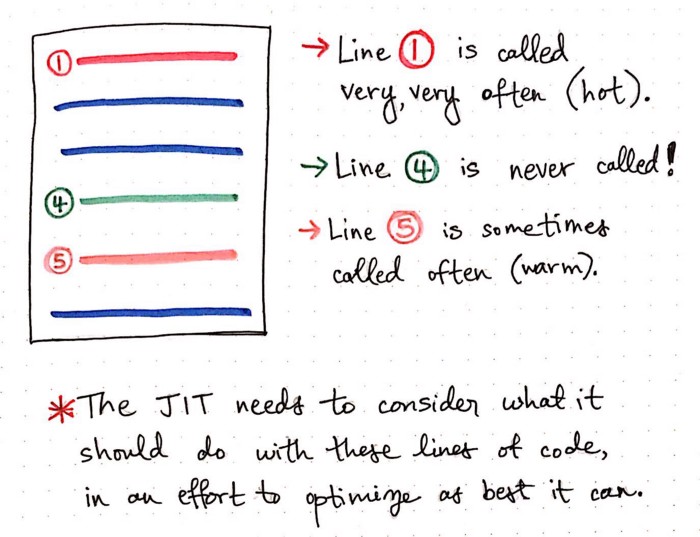 ① → Line ① is called
very, very often (hot).
④ → Line ④ is never called!
⑤ → Line ⑤ is sometimes
called often (warm).
* The JIT needs to consider what it
should do with these lines of code,
in an effort to optimize as best it can.